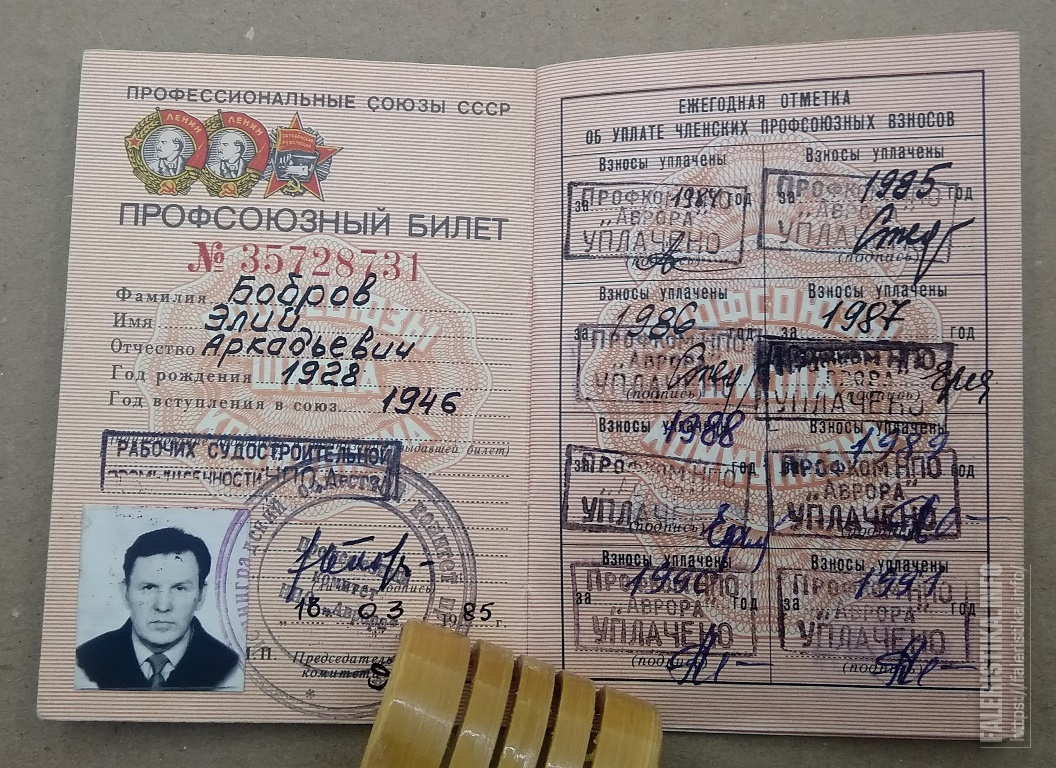 ПРОФЕССИОНАЛЬНЫЕ СОЮЗЫ СССР
ЛЕНИН ЛЕНИН
ПРОФСОЮЗНЫЙ БИЛЕТ
№ 35728731
Фамилия Бобров
Имя Элий
Отчество Аркадьевич
Год рождения 1928
Год вступления в союз 1946
выдавшей билет)
РАБОЧИХ СУДОСТРОИТЕЛЬНОЙ
ПРОМЫШЛЕННОСТИ НПО
КОМИТЕТ
18 03 1985 г.
М.П. Председатель
комитета
ЕЖЕГОДНАЯ ОТМЕТКА
ОБ УПЛАТЕ ЧЛЕНСКИХ ПРОФСОЮЗНЫХ ВЗНОСОВ
Взносы уплачены Взносы уплачены
за 1984 год за 1985 год
ПРОФКОМ НПО
„АВРОРА"
УПЛАЧЕНО
(подпись) (подпись)
Взносы уплачены Взносы уплачены
за 1986 год за 1987 год
ПРОФКОМ НПО ПРОФКОМ НПО
АВРОРА АВРОРА
УПЛАЧЕНО УПЛАЧЕНО
(подпись) (подпись)
Взносы уплачены Взносы уплачены
1988 год 1989 год
ПРОФКОМ НПО ПРОФКОМ НПО
„АВРОРА" „АВРОРА"
УПЛАЧЕНО УПЛАЧЕНО
(подпись) (подпись)
Взносы уплачены Взносы уплачены
за 1990 год за 1991 год
ПРОФКОМ НПО ПРОФКОМ НПО
„АВРОРА" „АВРОРА"
УПЛАЧЕНО УПЛАЧЕНО
(подпись) (подпись)
FALERISTIKA.INFO
https://faleristika.info/